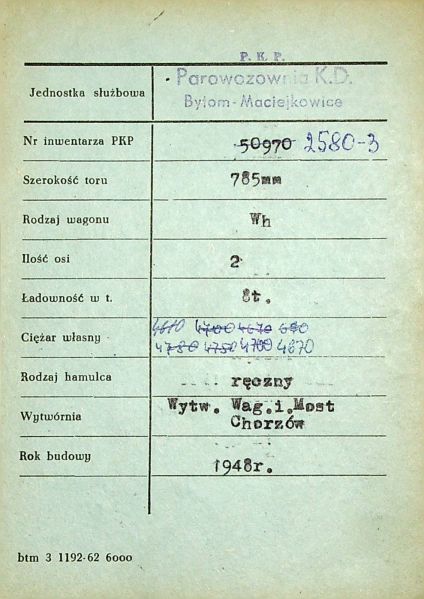 P. K. P.
Jednostka służbowa
Parowozownia K.D.
Bytom-Maciejkowice
Nr inwentarza PKP 50970 2580-3
Szerokość toru 785mm
Rodzaj wagonu Wh
Ilość osi 2
Ładowność w t. 8t.
4610 4700 4670 690
Ciężar własny
4780 4750 4700 4670
Rodzaj hamulca ręczny
Wytwórnia Wytw. Wag.i.Most
Chorzów
Rok budowy 1948r.
btm 3 1192-62 6000